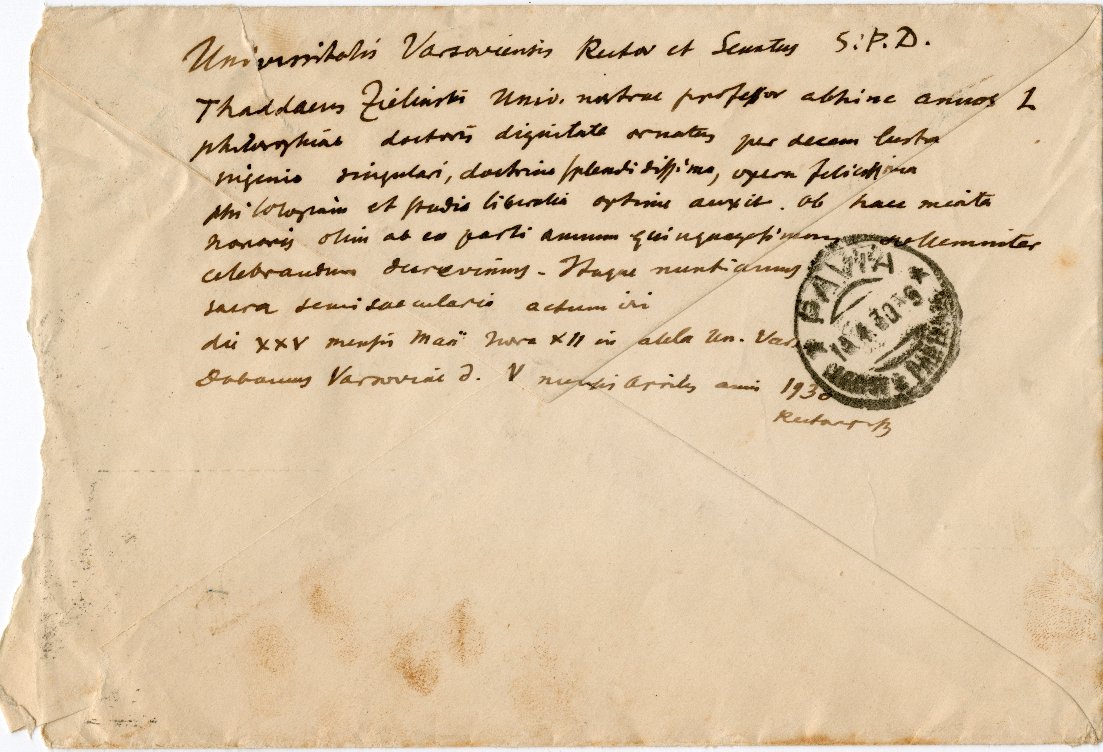 Universitatis Varsoviensis Rector et Senatus S.P.D.
Thaddaeus Zieliński Univ. nostrae professor abhinc annos L
philosophiae doctoris dignitate ornatus per decem lustra
ingenio singulari, doctrina splendidissima, opera felicissima
philologiam et studia liberalia optime auxit. Ob haec merita
honoris olim ab eo parti annum quinquagesimum sollemniter
celebrandum decrevimus. Itaque nuntiamus
sacra semisaecularia actum iri
die XXV mensis Maii hora XII in aula Un. Var.
Dabamus Varsoviae d. V mensis Aprilis anni 1930
PAVIA